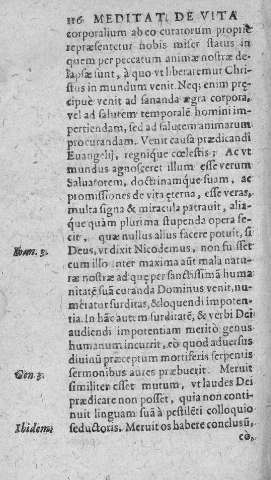 116 MEDITAT. DE VITA
corporalium ab eo curatorum propriè
repræsentetur nobis miser status in
quem per peccatum animæ nostræ de-
lapsæ sunt, à quo vt liberaremur Chri-
stus in mundum venit. Neq; enim præ-
cipuè venit ad sananda ægra corpora,
vel ad salutem temporalē homini im-
pertiendam, sed ad salutem animarum
procurandam. Venit causa prædicandi
Euangelij, regnique cœlestis; Ac vt
mundus agnosceret illum esse verum
Saluatorem, doctrinamque suam, ac
promissiones de vita eterna, esse veras,
multa signa & miracula patrauit, alia-
que quàm plurima stupenda opera fe-
cit, quæ nullus alius facere potuit, si
Ioan. 3. Deus, vt dixit Nicodemus, non fuisset
cum illo inter maxima aūt mala natu-
ræ nostræ ad que per sanctissimā huma
nitatē suā curanda Dominus venit, nu-
mēratur surditas, & eloquendi impoten-
tia. In hāc autem surditatē, & verbi Dei
audiendi impotentiam meritò genus
humanum incurrit, eò quod aduersus
diuinū præceptum mortiferis serpentis
Gen 3. sermonibus aures præbuerit. Meruit
similiter esset mutum, vt laudes Dei
prædicare non posset, quia non conti-
nuit linguam suā à pestilēti colloquio
Ibidem. seductoris. Meruit os habere conclusū,
cò,